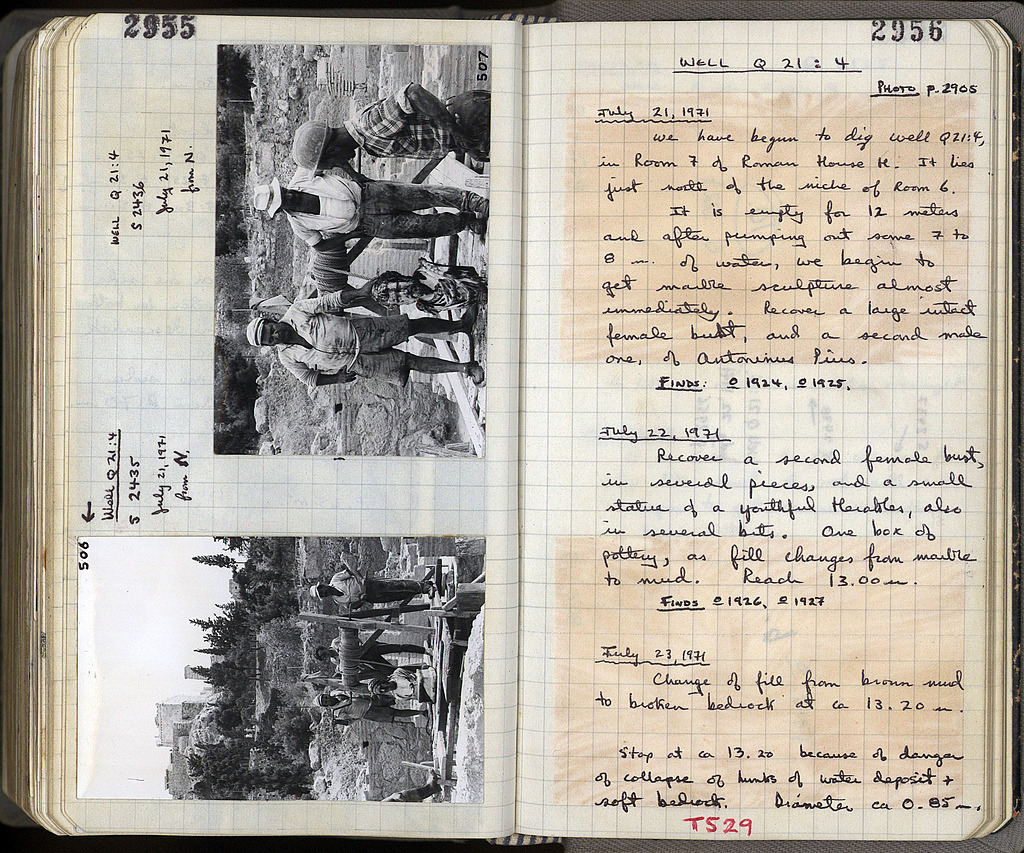 2955
WELL Q 21:4
S 2436
July 21, 1971
from N.
507
←
Well Q 21:4
S 2435
July 21, 1971
from N.
506
2956
WELL Q 21:4
PHOTO p. 2905
July 21, 1971
We have begun to dig well Q21:4,
in Room 7 of Roman House H. It lies
just north of the niche of Room 6.
It is empty for 12 meters
and after pumping out some 7 to
8 m. of water, we begin to
get marble sculpture almost
immediately. Recover a large intact
female bust, and a second male
one, of Antoninus Pius.
FINDS: 1924, 1925.
July 22, 1971
Recover a second female bust,
in several pieces, and a small
statue of a youthful Herakles, also
in several bits. One box of
pottery, as fill changes from marble
to mud. Reach 13.00 m.
FINDS 1926, 1927
July 23, 1971
Change of fill from brown mud
to broken bedrock at ca 13.20 m.
Stop at ca 13.20 because of danger
of collapse of of water deposit +
soft bedrock. Diameter ca 0.85 m.
T529